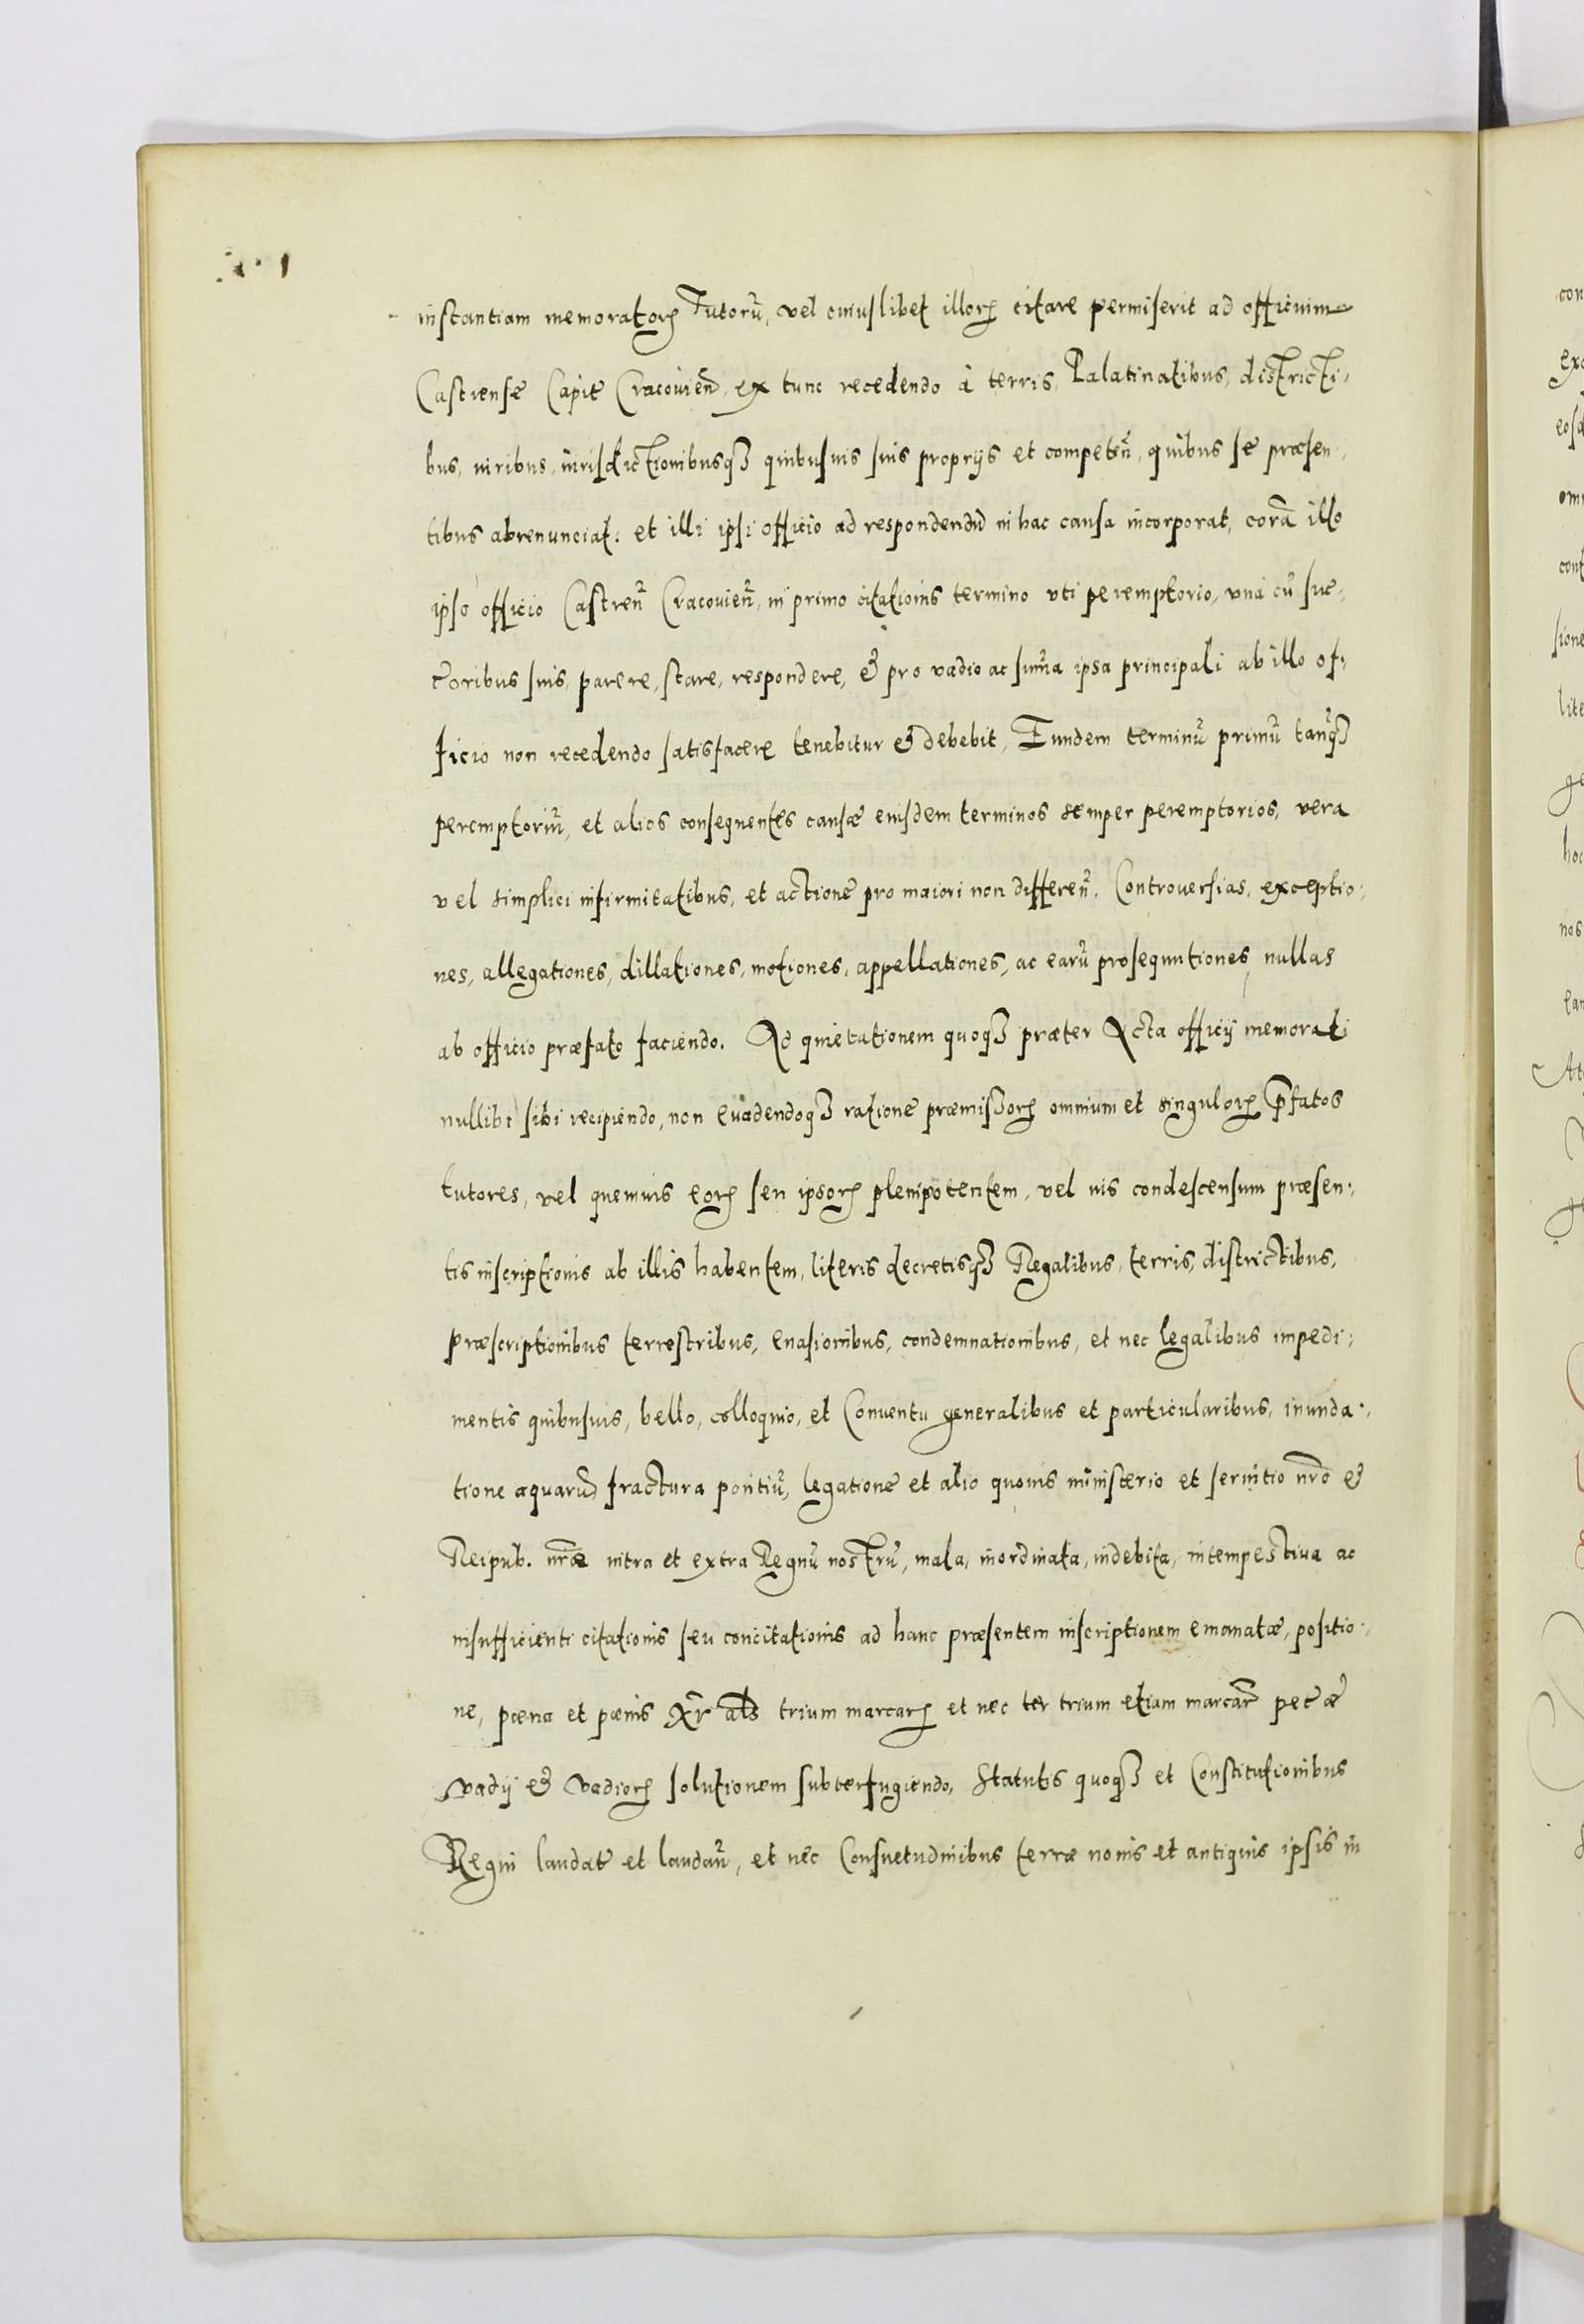 instantiam memoratorꝝ Tutorū, vel cuiuslibet illorꝝ citare permiserit ad officium
Castrense Capit Cracovieñ, ex tunc recedendo à terris, Palatinatibus, districti-
bus, iuribus, iurisdictionibusqꝫ quibusuis suis proprijs et competeñ, quibus se præsen-
tibus abrenunciat: et illi ipsi officio ad respondendū in hac causa incorporat, corā illo
ipso officio Castreñ Cracovieñ, in primo citationis termino vti peremptorio, vnà cū suc-
coribus suis, parere, stare, respondere, & pro vadio ac sum̄a ipsa principali ab illo of-
ficio non recedendo satisfacere tenebitur & debebit, Eundem terminū primū tanqꝫ
peremptoriū, et alios consequentes causæ eiusdem terminos semper peremptorios, vera
vel simplici infirmitatibus, et actione pro maiori non differeñ. Controuersias, exceptio-
nes, allegationes, dillationes, motiones, appellationes, ac earū prosequutiones nullas
ab officio præfato faciendo. Ad quietationem quoqꝫ præter Acta officij memorati
nullibi sibi recipiendo, non euadendoqꝫ ratione præmissorꝝ omnium et singulorꝝ p̄fatos
tutores, vel quemuis eorꝝ seu ipsorꝝ plenipotentem, vel uis condescensum præsen-
tis inscriptionis ab illis habentem, literis decretisqꝫ Regalibus, terris, districtibus,
præscriptionibus terrestribus, euasionibus, condemnationibus, et nec legalibus impedi-
mentis quibusuis, bello, colloquio, et Conuentu generalibus et particularibus, inunda-
tione aquarū fractura pontiū, legatione et alio quouis ministerio et seruitio nr̄o &
Reipub. nr̄æ intra et extra Regnū nostrū, mala, inordinata, indebita, intempestiua ac
insufficienti citationis seu concitationis ad hanc præsentem inscriptionem emanatæ, positio-
ne, pœna et pœnis Xr̄ als trium marcarꝝ et nec ter trium etiam marcar pec æ
vadij & vadiorꝝ solutionem subterfugiendo, Statutis quoqꝫ et Constitutionibus
Regni laudat et laudañ, et nec Consuetudinibus terræ nouis et antiquis ipsis in